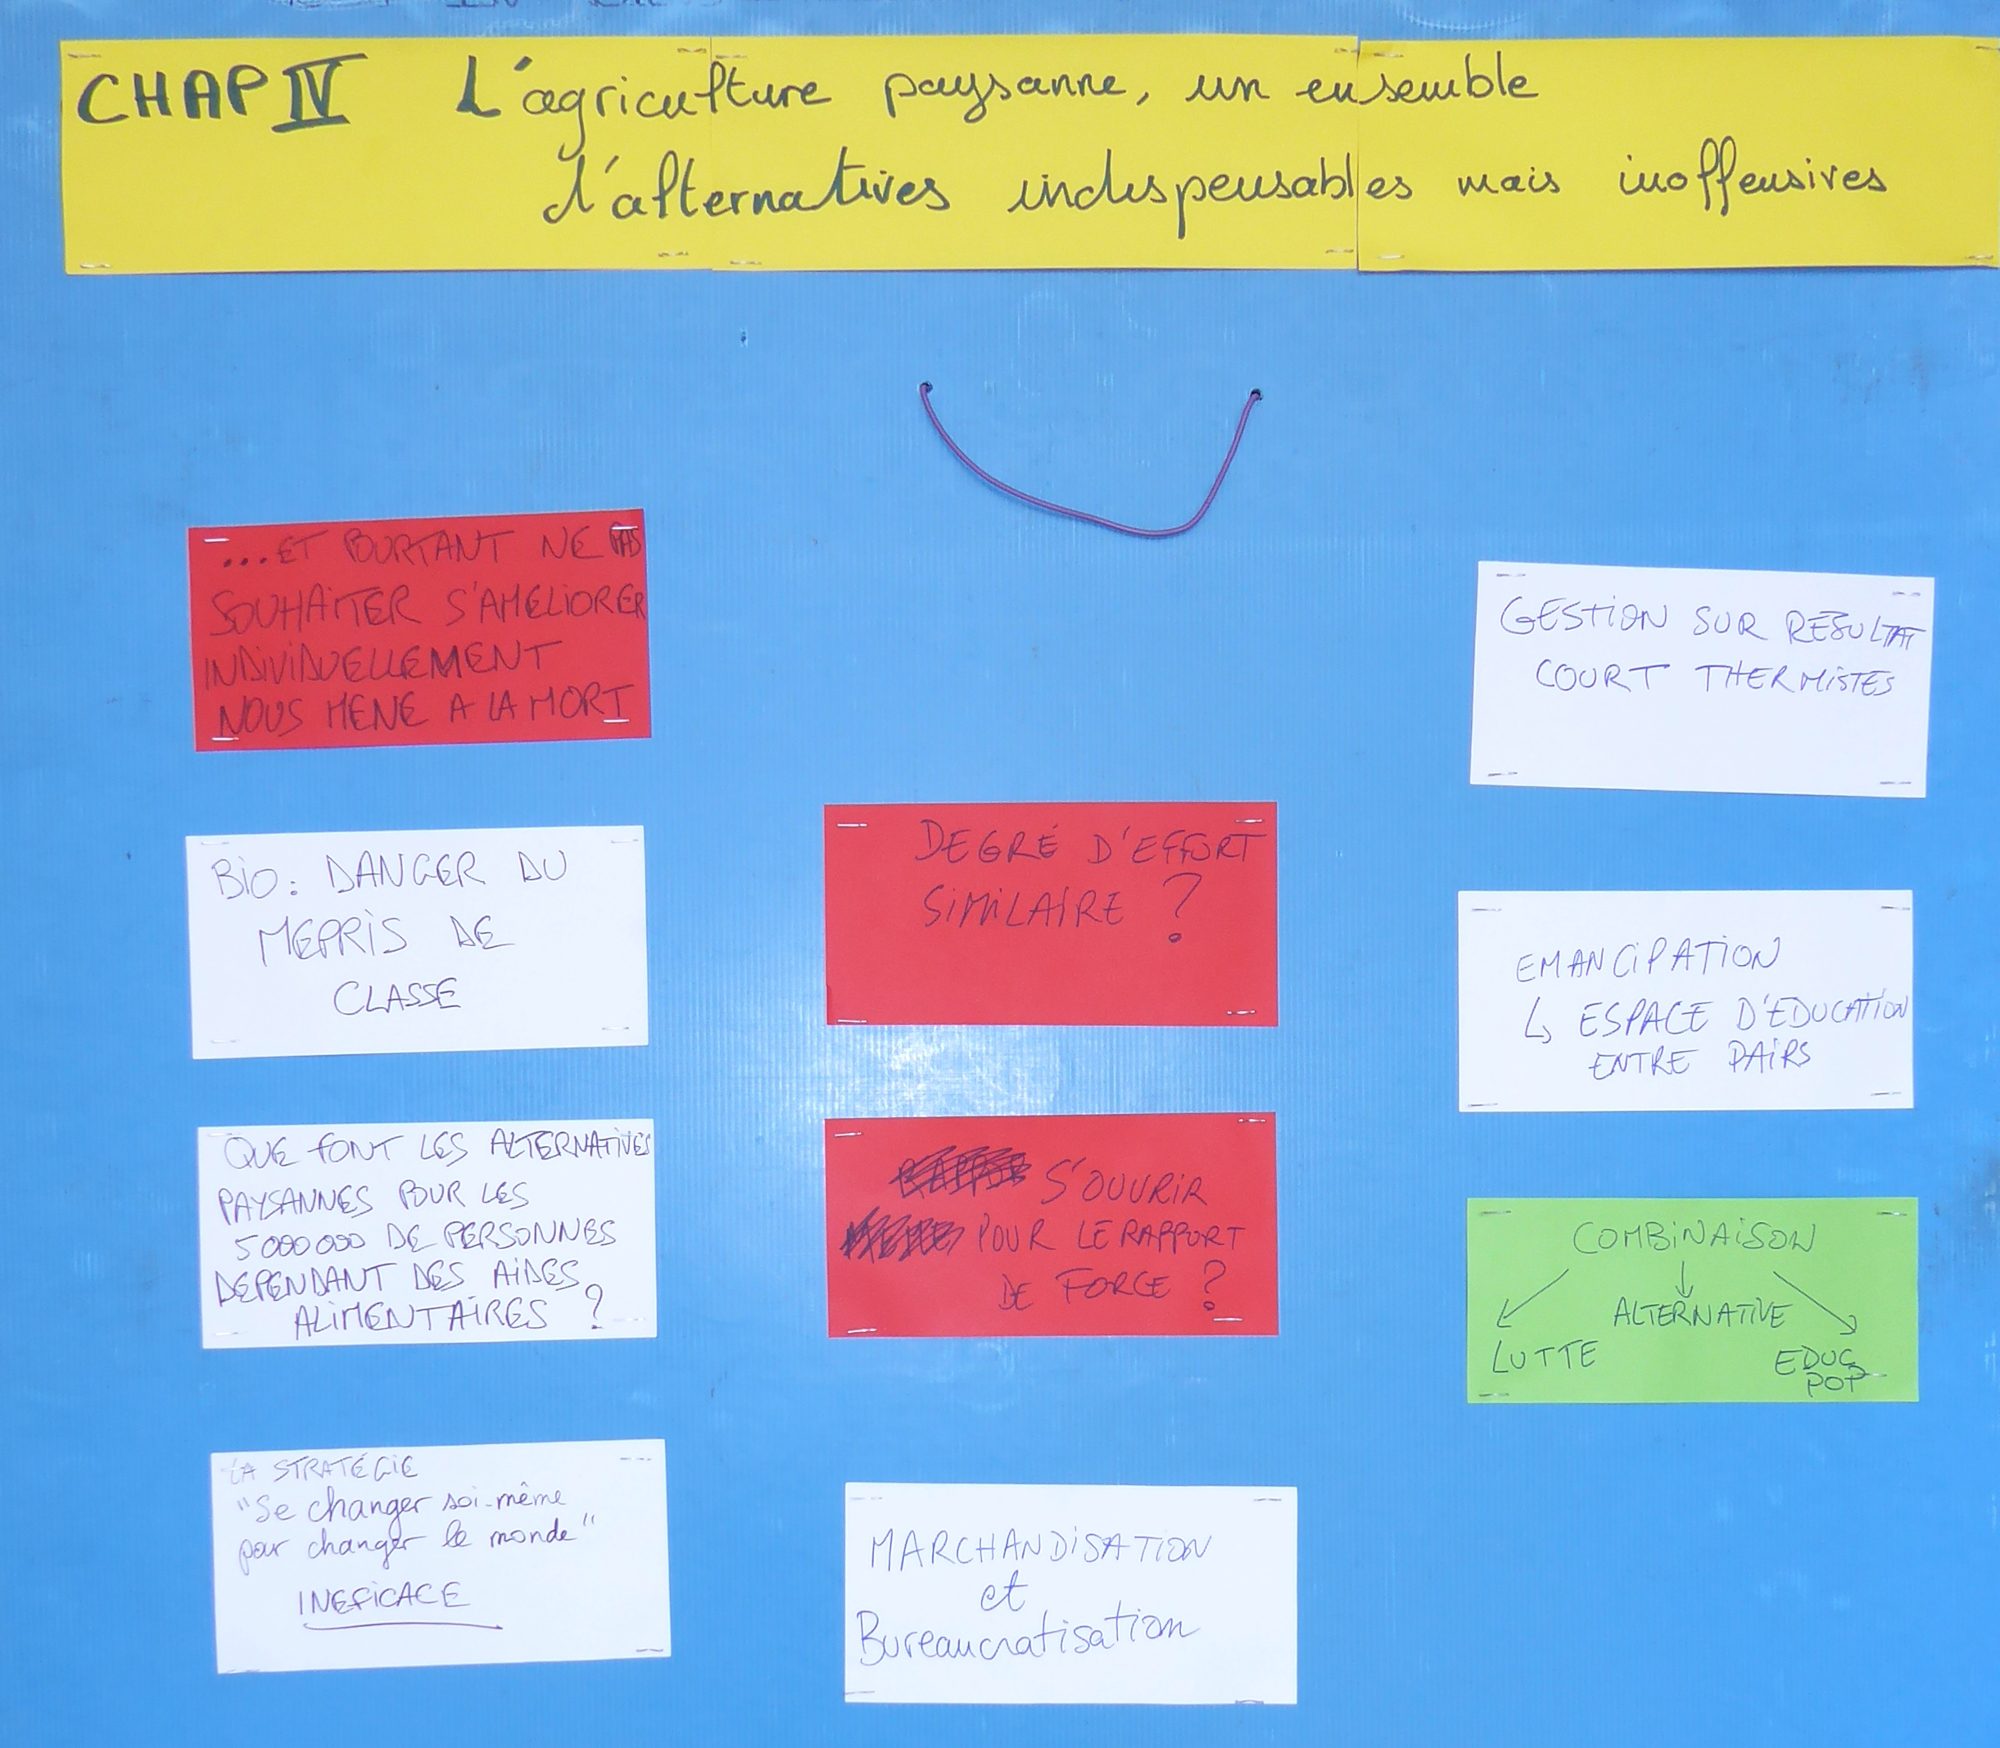 CHAP IV L'agriculture paysanne, un ensemble
d'alternatives indispensables mais inoffensives
...ET POURTANT NE PAS
SOUHAITER S'AMELIORER
INDIVIDUELLEMENT
NOUS MENE A LA MORT
BIO: DANGER DU
MEPRIS DE
CLASSE
QUE FONT LES ALTERNATIVES
PAYSANNES POUR LES
5000000 DE PERSONNES
DEPENDANT DES AIDES
ALIMENTAIRES ?
LA STRATÉGIE
"Se changer soi-même
pour changer le monde"
INEFICACE
DEGRÉ D'EFFORT
SIMILAIRE ?
S'OUVRIR
POUR LE RAPPORT
DE FORCE ?
MARCHANDISATION
et
Bureaucratisation
GESTION SUR RESULTAT
COURT THERMISTES
EMANCIPATION
↳ ESPACE D'EDUCATION
ENTRE PAIRS
COMBINAISON
ALTERNATIVE
LUTTE
EDUC
POP